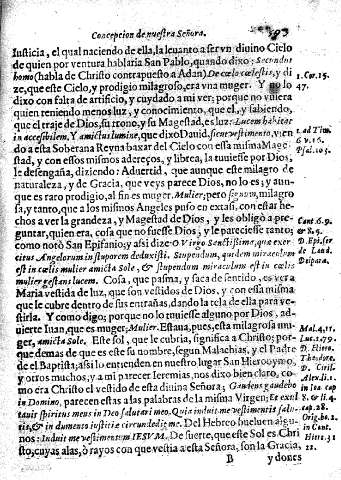 Concepcion de nuestra Señora.
Iusticia, el qual naciendo de ella, la leuanto a ser vn diuino Cielo
de quien por ventura hablaria San Pablo, quando dixo: Secundus
homo (habla de Christo contrapuesto a Adan) De cœlo cœlestis, y di
ze, que este Cielo, y prodigio milagroso, era vna muger. Y no lo
dixo con falta de artificio, y cuydado a mi ver; porque no vuiera
quien reniendo menos luz, y conocimiento, que el, y sabiendo,
que el traje de Dios, su trono, y su Magestad, es luz: Lucem habitat in
accesibilem. Y amictus lumine, que dixo Dauid, sicut vestimento, vien
do a esta Soberana Reyna baxar del Cielo con essa misma Mage
stad, y con essos mismos adereços, y librea, la tuuiesse por Dios,
le desengaña, diziendo: Aduertid, que aunque este milagro de
naturaleza, y de Gracia, que veys parece Dios, no lo es; y aun
que es raro prodigio, al fin es muger. Mulier; pero signum, milagro
sa, y tanto, que a los mismos Angeles puso en extasi, con estar he-
chos a ver la grandeza, y Magestad de Dios, y les obligò a pre-
guntar, quien era, cosa que no fuesse Dios, y le pareciesse tanto;
como notò San Epifanio; y assi dize: O Virgo Sanctissima, quæ exer
citus Angelorum in stuporem deduxisti. Stupendum, quidem miraculum
est in cœlis mulier amicta Sole, & stupendum miraculum est in cœlis
mulier gestans lucem. Cosa, que pasma, y saca de sentido, es ver a
Maria vestida de luz, que son vestidos de Dios, y con essa misma
que le cubre dentro de sus entrañas, dando la tela de ella para ve-
stirla. Y como digo; porque no lo tuuiesse alguno por Dios, ad-
uierte Iuan, que es muger; Mulier. Estaua, pues, esta milagrosa mu-
ger, amicta Sole. Este sol, que le cubria, significa a Christo; por-
que demas de que es este su nombre, segun Malachias, y el Padre
del Baptista; assi lo entienden en nuestro lugar San Hieronymo,
y otros muchos, y a mi parecer Ieremias, nos dixo bien claro, co-
mo era Christo el vestido de esta diuina Señora; Gaudens gaudebo
in Domino, parecen estas a las palabras de la misma Virgen; Et exul
tauit spiritus meus in Deo salutari meo. Quia induit me vestimentis salu-
tis, & indumento iustitiæ circundedit me. Del Hebreo bueluen algu-
nos: Induit me vestimentum IESVM. De suerte, que este Sol es Chri
sto, cuyas alas, ò rayos con que vestia a esta Señora, son la Gracia,
B y dones
1. Cor. 15.
47.
1. ad Tim.
6 v. 16.
Psal. 103.
Cant. 6.9.
& 8.5.
D. Epi. ser
de Laud.
Deipara.
Mal. 4. 11.
Luc. 1. 79.
D. Hiero.
Theodore.
D. Ciril.
Alex. li. 1.
in Isa. cap
8. & li. 4.
cap. 28.
Orig. ho. 1.
in Cant.
Hiere. 31
22.